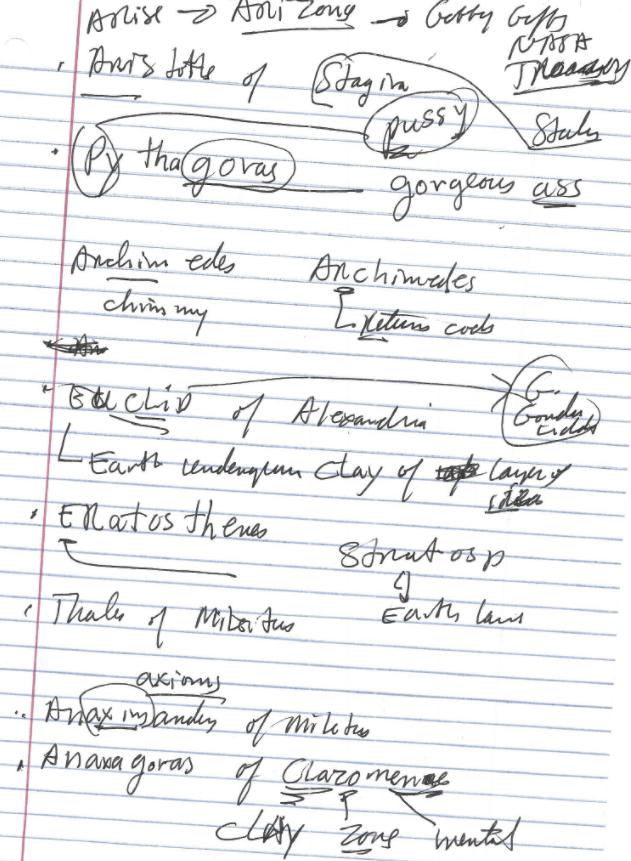 Arise → Arizona → Getty Gifts
NASA
Aristotle of Stagira
pussy
Pythagoras gorgeous ass
Archimedes Archimedes
chimmy Return code
Euclid of Alexandria G.
Earth clay of layer of
idea
ERatosthenes
Stratosp
Earth law
Thales of Miletus
axioms
Anaximander of Miletus
Anaxagoras of Clazomenae
clay zone mental